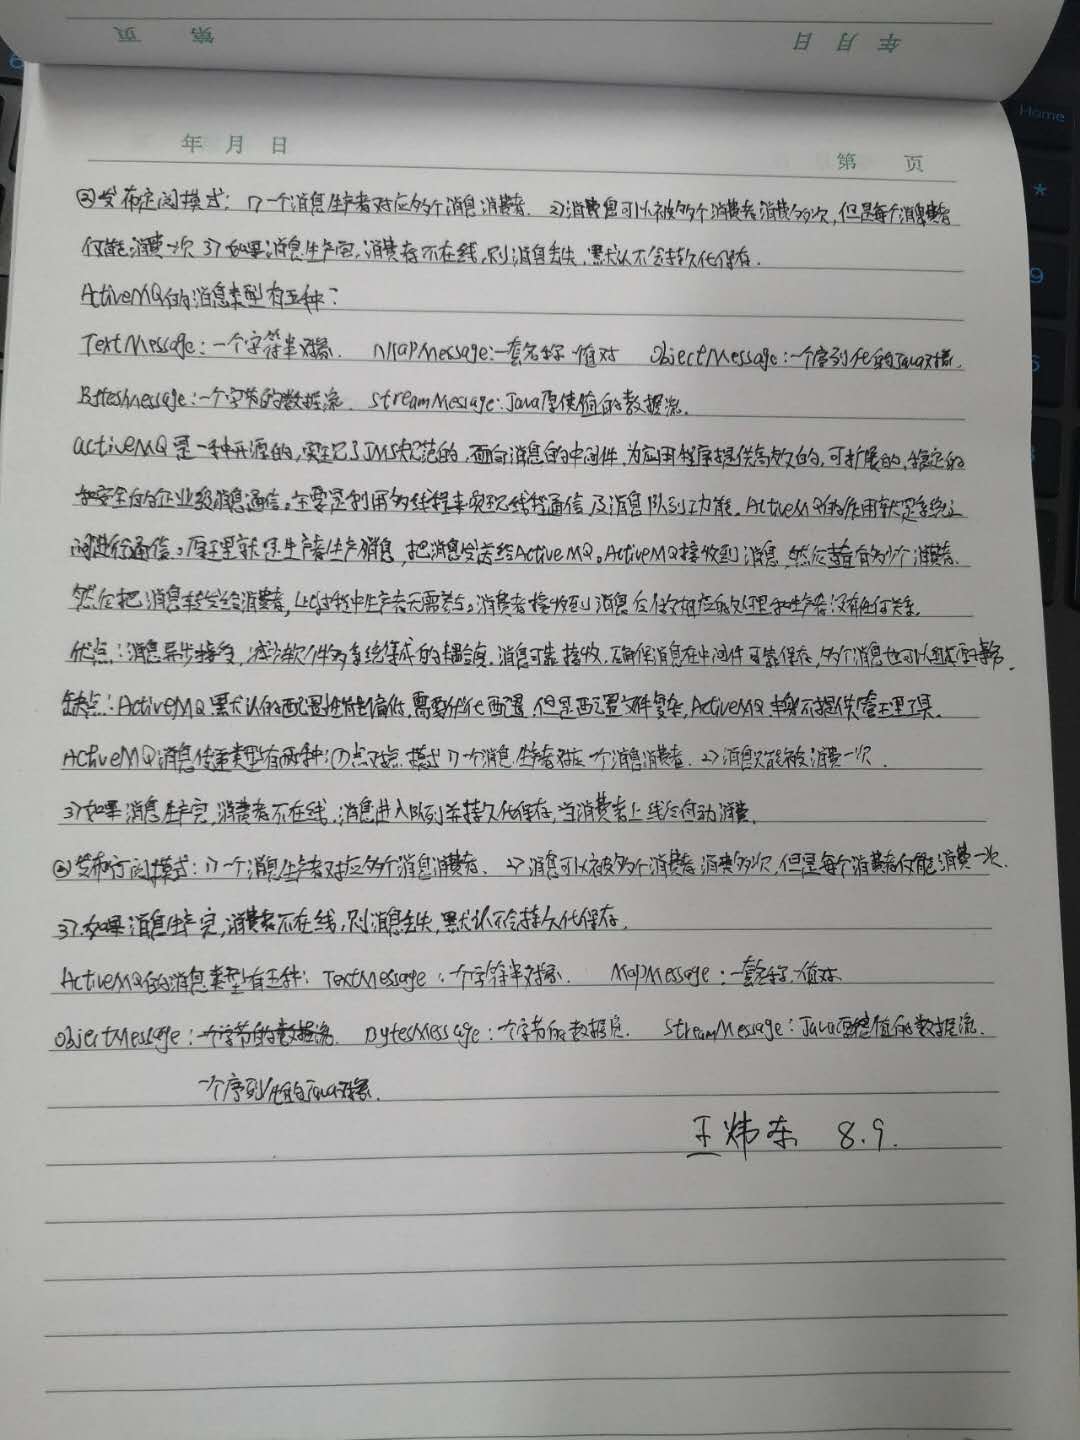 年 月 日
第 页
年 月 日
第 页
②发布订阅模式：1)一个消息生产者对应多个消息消费者. 2)消费息可以被多个消费者消费多次，但是每个消息费者
仅能消费一次 3)如果消息生产完，消费者不在线，则消息丢失，默认不会持久化保存.
ActiveMQ的消息类型有五种：
TextMessage：一个字符串对象. MapMessage：一套名称-值对 ObjectMessage：一个序列化的Java对象.
BytesMessage：一个字节的数据流. StreamMessage：Java原使值的数据流.
ActiveMQ是一种开源的，实现了JMS规范的，面向消息的中间件，为应用程序提供高效的，可扩展的，稳定的
和安全的企业级消息通信。主要是利用多线程来实现线程通信及消息队列功能。ActiveMQ的作用就是系统之
间进行通信。原理就是生产者生产消息，把消息发送给ActiveMQ。ActiveMQ接收到消息，然后查看有多少个消费者.
然后把消息转发给消费者，此过程中生产者无需参与。消费者接收到消息后做相应的处理和生产者没有任何关系.
优点：消息异步接受，减少软件多系统集成的耦合度，消息可靠接收，确保消息在中间件可靠保存，多个消息也可以组成原子事务.
缺点：ActiveMQ默认的配置性能偏低，需要优化配置，但是配置文件复杂，ActiveMQ本身不提供管理工具.
ActiveMQ消息传递类型有两种：①点对点模式 1)一个消息生产者对应一个消息消费者. 2)消息只能被消费一次.
3)如果消息生产完，消费者不在线，消息进入队列并持久化保存，当消费者上线后付动消费.
②发布订阅模式：1)一个消息生产者对应多个消息消费者. 2)消息可以被多个消费者消费多次，但是每个消费者仅能消费一次.
3)如果消息生产完，消费者不在线，则消息丢失，默认不会持久化保存.
ActiveMQ的消息类型有五种：TextMessage：一个字符串对象. MapMessage：一套名称-值对.
ObjectMessage：一个字节的数据流. BytesMessage：一个字节的数据息. StreamMessage：Java原值的数据流.
一个序列化的Java对象.
王炜东 8.9.
Home